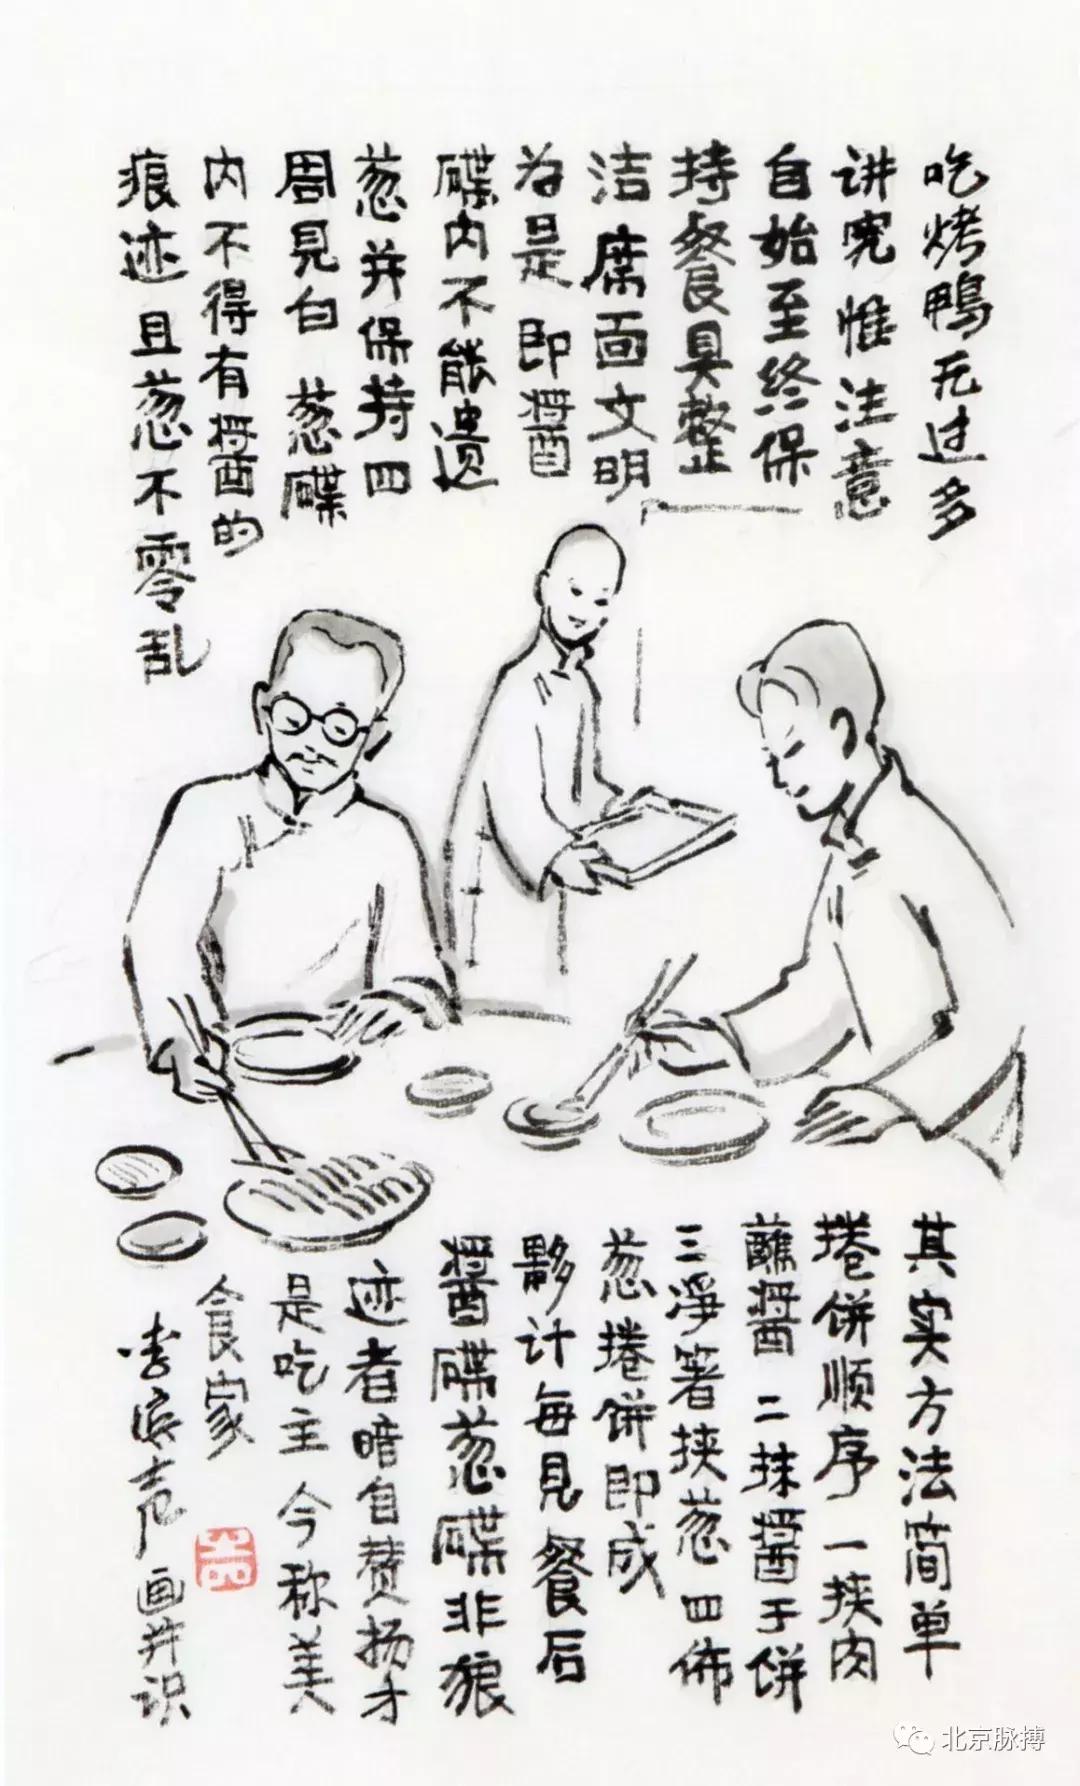 吃烤鴨无过多
讲究惟注意
自始至终保
持餐具整
洁席面文明
为是即醬
碟内不能遗
葱并保持四
周見白葱碟
内不得有醬的
痕迹且葱不零乱
其实方法简单
捲饼顺序一挟肉
蘸醬二抹醬于饼
三淨箸挟葱四佈
葱捲饼即成
夥计每見餐后
醬碟葱碟非狼
迹者暗自赞扬才
是吃主今称美
食家
李滨声画并识
北京脉搏